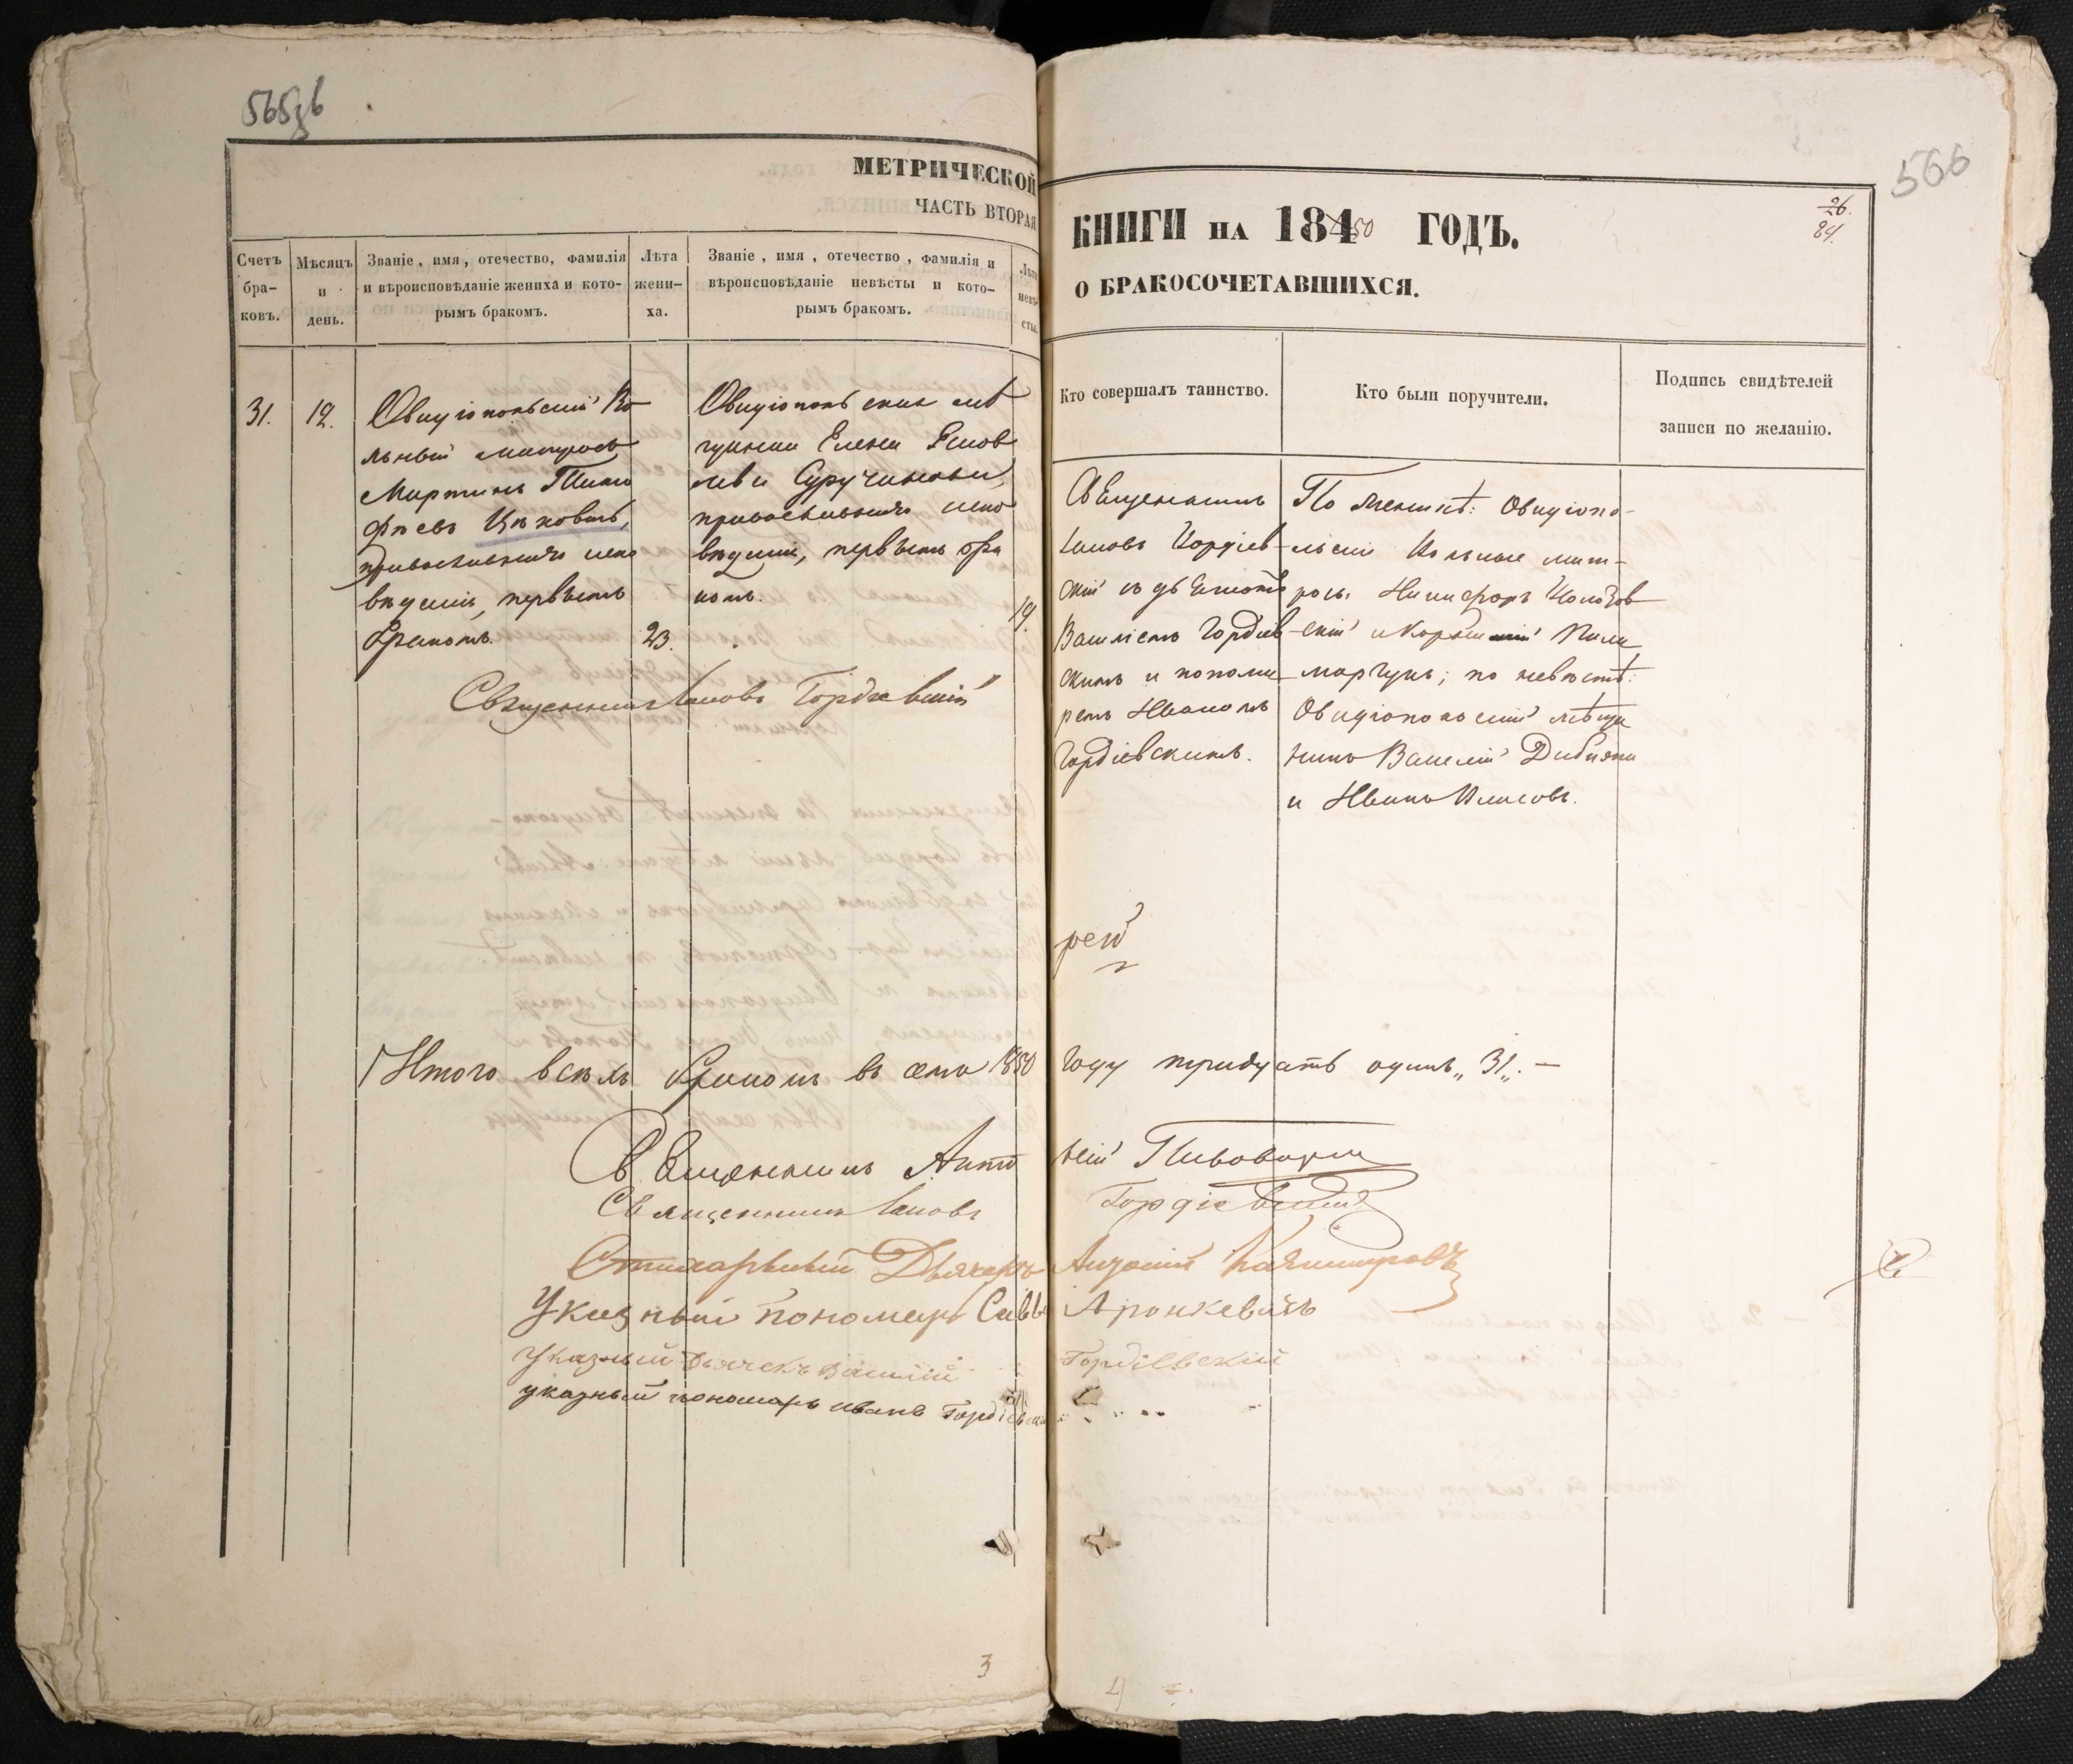 565зв
566
МЕТРИЧЕСКОЙ
ЧАСТЬ ВТОРАЯ
КНИГИ НА 1850 ГОДЪ.
О БРАКОСОЧЕТАВШИХСЯ.
26.
84.
Счетъ бра- ковъ.
Мѣсяцъ и день.
Званіе, имя, отечество, фамилія и вѣроисповѣданіе жениха и кото- рымъ бракомъ.
Лѣта жени- ха.
Званіе, имя, отечество, фамилія и вѣроисповѣданіе невѣсты и кото- рымъ бракомъ.
Лѣта невѣ- сты.
Кто совершалъ таинство.
Кто были поручители.
Подпись свидѣтелей записи по желанію.
31.
12.
Овидіопольскій Во
льный матросъ
Мартинъ Тимо
фѣевъ
православнаго испо
вѣданія, первымъ
бракомъ.
23.
Овидіопольская мѣ
щанка Елена Яков
лева Суручанова,
православнаго испо
вѣданія, первымъ бра
комъ.
19.
Священникъ
Іаковъ Гордіев
скій съ дьячкомъ
Василіемъ Гордіев
скимъ и понома
ремъ Иваномъ
Гордіевскимъ.
По женихѣ: Овидіопо-
льскіе Вольные мат-
росы Никифоръ
скій и
по невѣстѣ:
Овидіопольскій мѣща
нинъ Василій
и Иванъ Власовъ.
Священникъ Іаковъ Гордіевскій
рей
Итого всѣхъ браковъ въ семъ 1850 году тридцать одинъ „31„. —
Священникъ Антоній Пивоваръ
Священникъ Іаковъ Гордіевскій
Стихарный Дьячекъ Андроній Казимировъ
Указный Пономарь Савва Аронкевичъ
Указный Дьячекъ Василій Гордіевскій
указный пономарь иванъ Гордіевскій
3